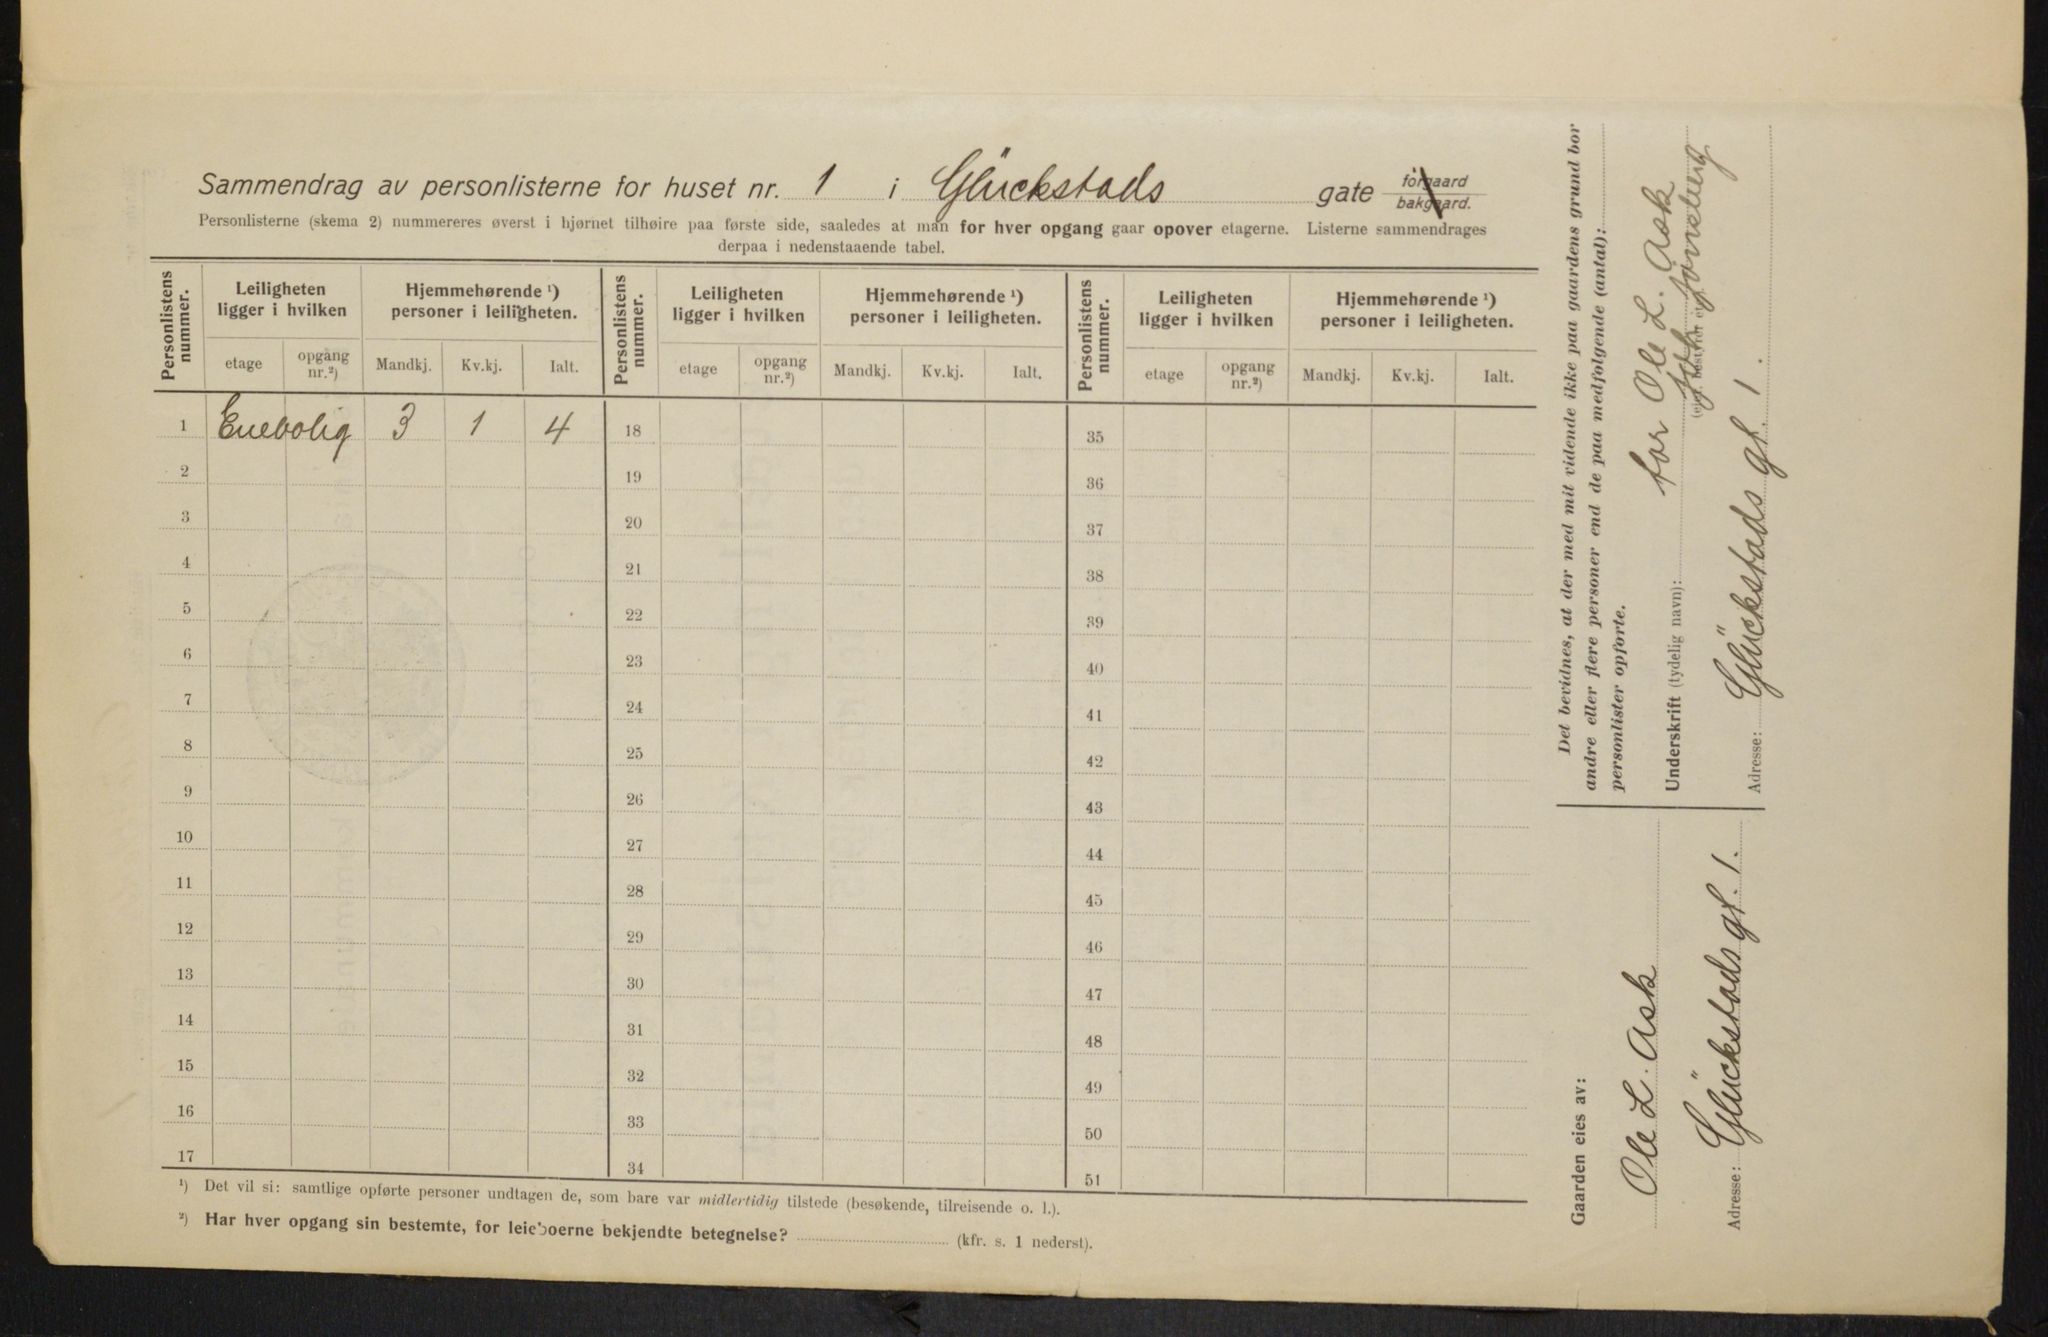 Sammendrag av personlisterne for huset nr. 1 i Glückstads gate forgaard bakgaard.
Personlisterne (skema 2) nummereres øverst i hjørnet tilhøire paa første side, saaledes at man for hver opgang gaar opover etagerne. Listerne sammendrages
derpaa i nedenstaaende tabel.
Personlistens nummer. Leiligheten ligger i hvilken Hjemmehørende ¹) personer i leiligheten. Personlistens nummer. Leiligheten ligger i hvilken Hjemmehørende ¹) personer i leiligheten. Personlistens nummer. Leiligheten ligger i hvilken Hjemmehørende ¹) personer i leiligheten.
etage opgang nr.²) Mandkj. Kv.kj. Ialt. etage opgang nr.²) Mandkj. Kv.kj. Ialt. etage opgang nr.²) Mandkj. Kv.kj. Ialt.
1 Enebolig 3 1 4 18 35
2 19 36
3 20 37
4 21 38
5 22 39
6 23 40
7 24 41
8 25 42
9 26 43
10 27 44
11 28 45
12 29 46
13 30 47
14 31 48
15 32 49
16 33 50
17 34 51
¹) Det vil si: samtlige opførte personer undtagen de, som bare var midlertidig tilstede (besøkende, tilreisende o. l.).
²) Har hver opgang sin bestemte, for leieboerne bekjendte betegnelse? (kfr. s. 1 nederst).
Det bevidnes, at der med mit vidende ikke paa gaardens grund bor
andre eller flere personer end de paa medfolgende (antal):
personlister opforte.
for Ole L. Ask
Underskrift (tydelig navn):
Adresse: Glückstads gt. 1.
Gaarden eies av:
Ole L. Ask
Adresse: Glückstads gt. 1.